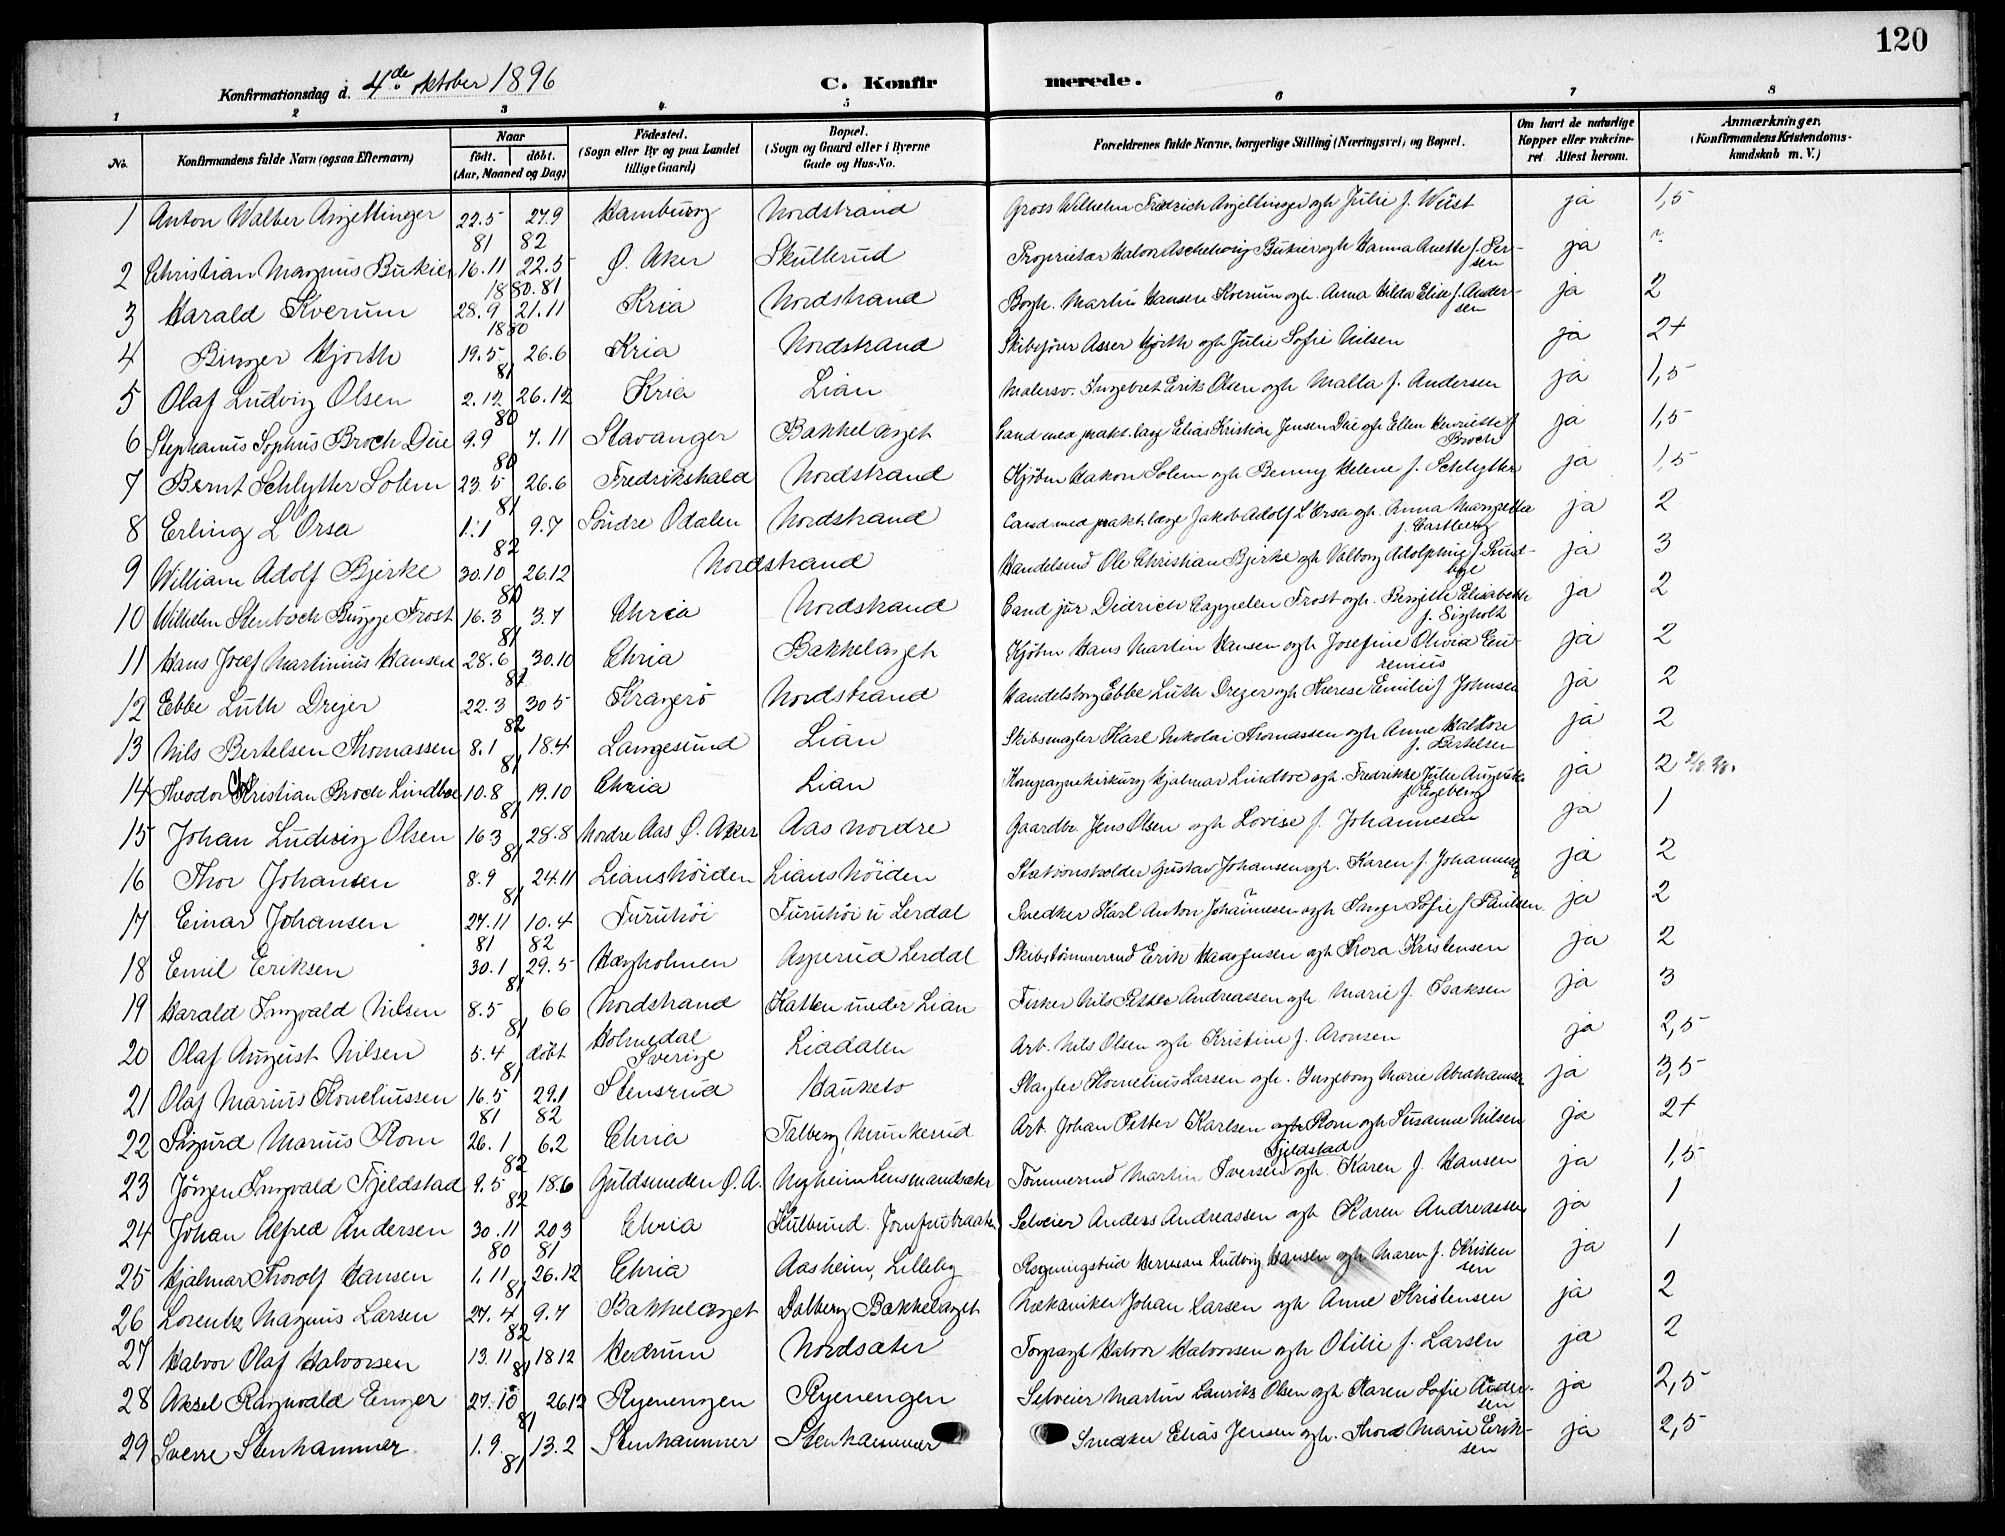 120
Konfirmationsdag d. 4de oktober 1896 C. Konfirmerede.
1 2 3 4 5 6 7 8
No. Konfirmandens fulde Navn (ogsaa Efternavn) Naar født. døbt. (Aar, Maaned og Dag) Fødested. (Sogn eller By og paa Landet tillige Gaard) Bopæl. (Sogn og Gaard eller i Byerne Gade og Hus-No. Forældrenes fulde Navne, borgerlige Stilling (Næringsvei) og Bopæl. Om havt de naturlige Kopper eller vaccineret Attest herom. Anmærkninger. (Konfirmandens Kristendomskundskab m. V.)
1 Anton Walter Angeltinger 22.5 81 27.9 82 Hamburg Nordstrand Gross Wilhelm Fredrich Angeltinger ogh Julie f. Wüst ja 1,5
2 Christian Magnus Bukier 16.11 1880 22.5 81 Ø. Aker Skullerud Proprietær Halvor Aschehoug Bukier ogh Hanna Anette f. Persen ja
3 Harald Kverum 28.9 21.11 1880 Kria Nordstrand Bogh. Martin Hansen Kverum ogh. Anna Hilda Elise f. Andersen ja 2
4 Birger Hjorth 19.5 26.6 81 Kria Nordstrand Skibsfører Asser Hjorth ogh Julie Sofie Nilsen ja 2+
5 Olaf Ludvig Olsen 2.12 26.12 80 Kria Lian Malersv. Ingebret Erik Olsen ogh Malla f. Andersen ja 1,5
6 Stephanus Sophus Broch Due 9.9 7.11 80 Stavanger Bakkelaget Cand med prakt. læge Elias Kristian Jensen Due ogh Ellen Henriette f Broch ja 1,5
7 Bernt Schlytter Solem 23.5 26.6 81 Fredrikshald Nordstrand Kjøbm Hakon Solem ogh Benny Helene f. Schlytter ja 1,5
8 Erling L'Orsa 1.1 9.7 82 Søndre Odalen Nordstrand Cand med prakt. læge Jakob Adolf L'Orsa gh. Anna Margretha f. Castberg ja 2
9 William Adolf Bjerke 30.10 26.12 80 Nordstrand Handelsmd Ole Christian Bjerke ogh Valborg Adolphine f Sundbye ja 3
10 Wilhelm Stenboch Bugge Frost 16.3 3.7 81 Chria Nordstrand Cand jur Didrich Cappelen Frost ogh. Birgitte Elisabeth f. Sigholt ja 2
11 Hans Josef Martinius Hansen 28.6 30.10 81 Chria Bakkelaget Kjøbm Hans Martin Hansen ogh Josefine Olivia ja 2
12 Ebbe Luth Drejer 22.3 30 5 82 Kragerø Nordstrand Handelsborg Ebbe Luth Drejer ogh Therese Emilie f Johnsen ja 2
13 Nils Bertelsen Thomassen 8.1 18.4 81 Langesund Lian Skibsmægler Karl Nikolai Thomassen ogh Anne f. Bertelsen ja 2
14 Theodor Christian Broch Lindboe 10.8 19.10 81 Chria Lian Kompagnichirurg Hjalmar Lindboe ogh. Fredrikke Julie Augusta f. Engeberg ja 2
15 Johan Ludvig Olsen 16 3 28.8 81 Nordre Aas Ø. Aker Aas nordre Gaardbr. Jens Olsen ogh Lovise f. Johannesen ja 1
16 Thor Johansen 8.9 24.11 81 Lianshøiden Lianshøiden Stationsholder Gustav Johansen ogh. Karen f. Johannesen ja 2
17 Einar Johansen 27.11 81 10.4 82 Furuhøi Furuhøi u Lerdal Snedker Karl Anton Johannesen ogh Inger Sofie f Paulsen ja 2
18 Emil Eriksen 30.1 29.5 81 Hægholmen Asperud Lerdal Skibstømmermd Erik Haagensen ogh Thora Kristensen ja 2
19 Harald Ingvald Nilsen 8.5 6 6 81 Nordstrand Katten under Lian Fisker Nils Petter Andreassen ogh Marie f. Isaksen ja 3
20 Olaf August Nilsen 5.4 døbt 81 Holmedal Sverige Liadalen Arb. Nils Olsen ogh Kristine f. Aronsen ja 2,5
21 Olaf Marius Korneliussen 16.5 81 29.1 82 Stensrud Hauketo Slagter Kornelius Larsen ogh. Ingeborg Marie Abrahamsen ja 3,5
22 Sigurd Marius Rom 26.1 6.2 82 Chria Talberg, Munkerud Arb. Johan Petter Karlsen Rom ogh Susanne Nilsen ja 2+
23 Jørgen Ingvald Fjeldstad 9.5 18.6 82 Guldsmeden Ø. A. Nyheim Lensmandsæter Tømmermd Martin Iversen Fjeldstad ogh. Karen f. Hansen ja 1,5
24 Johan Alfred Andersen 30.11 80 20 3 81 Chria Kulbund. Jomfrubraaten Selveier Anders Andreassen ogh Karen Andreassen ja 1
25 Hjalmar Thorolf Hansen 1.11 26.12 81 Chria Aasheim, Lilleby Regningsbud Herman Ludvig Hansen ogh Maren f. Kristensen ja 1
26 Lorentz Magnus Larsen 27.4 9.7 82 Bakkelaget Dalberg Bakkelaget Mekaniker Johan Larsen ogh Anne Kristensen ja 2
27 Halvor Olaf Halvorsen 13.11 18 12 81 Hedrum Nordsæter Torpagt Halvor Halvorsen ogh Otilie f. Larsen ja 2
28 Aksel Ragnvald Enger 27.10 26 12 81 Ryenengen Ryenengen Selveier Martin Laurits Olsen ogh Karen Sofie Andersen ja 2,5
29 Sverre Stenhammer 1.9. 13.2 81 Stenhammer Stenhammer Snedker Elias Jensen ogh. Thora Marie Eriksen ja 2,5